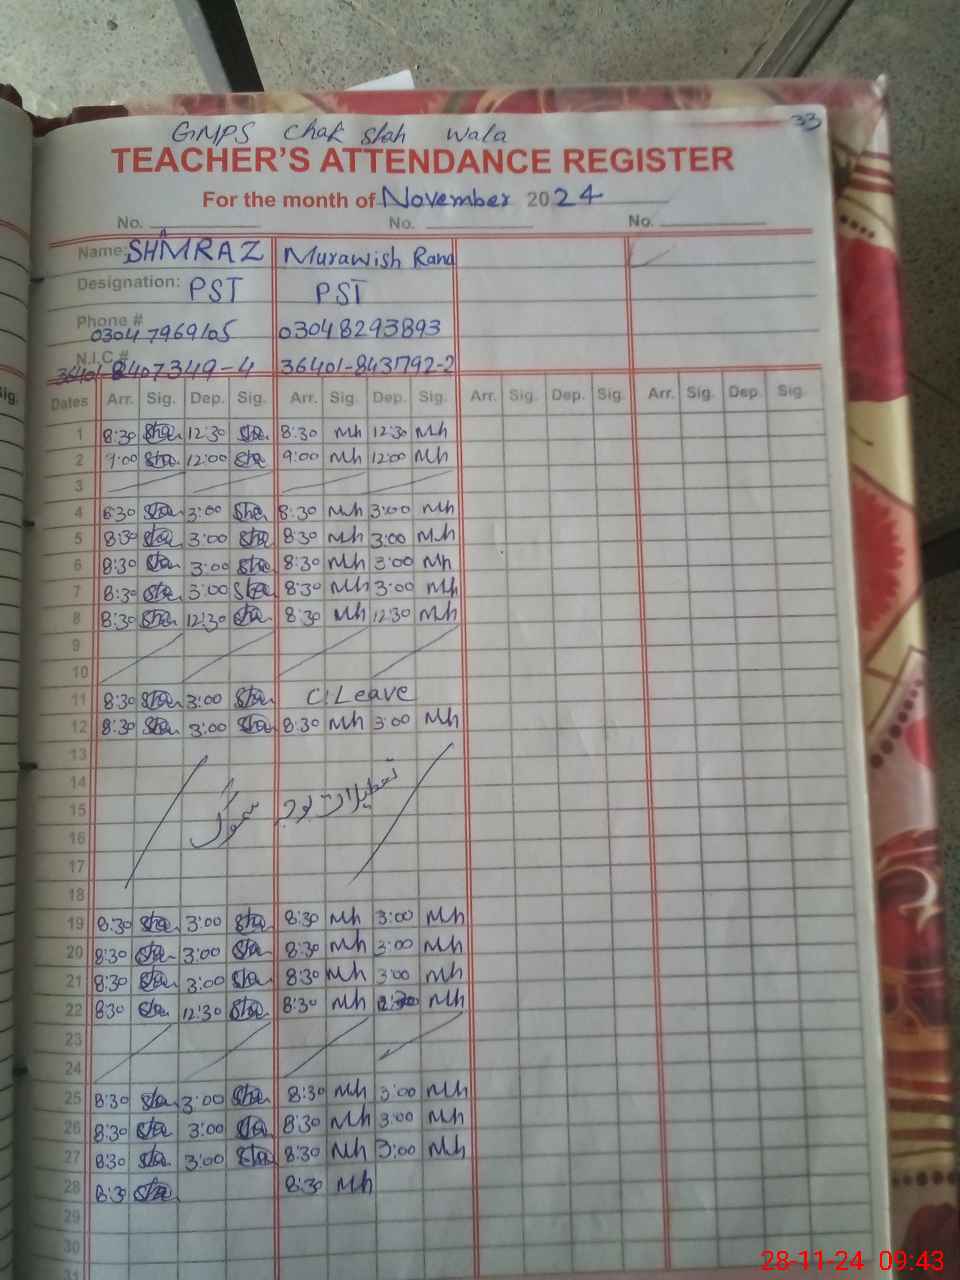 33
GMPS Chak Shah Wala
TEACHER'S ATTENDANCE REGISTER
For the month of November 2024
No. No. No.
Name: SHAMRAZ Murawish Rana
Designation: PST PST
Phone # 03047969105 03048293893
N.I.C.# 36401-8407349-4 36401-8431792-2
Dates Arr. Sig. Dep. Sig. Arr. Sig. Dep. Sig. Arr. Sig. Dep. Sig. Arr. Sig. Dep. Sig.
1 8:30 Sha 12:30 Sha 8:30 Mh 12:30 Mh
2 9:00 Sha 12:00 Sha 9:00 Mh 12:00 Mh
3
4 8:30 Sha 3:00 Sha 8:30 Mh 3:00 Mh
5 8:30 Sha 3:00 Sha 8:30 Mh 3:00 Mh
6 8:30 Sha 3:00 Sha 8:30 Mh 3:00 Mh
7 8:30 Sha 3:00 Sha 8:30 Mh 3:00 Mh
8 8:30 Sha 12:30 Sha 8:30 Mh 12:30 Mh
9
10
11 8:30 Sha 3:00 Sha C.Leave
12 8:30 Sha 3:00 Sha 8:30 Mh 3:00 Mh
13
14
15 تعطیلات بوجہ سموگ
16
17
18
19 8:30 Sha 3:00 Sha 8:30 Mh 3:00 Mh
20 8:30 Sha 3:00 Sha 8:30 Mh 3:00 Mh
21 8:30 Sha 3:00 Sha 8:30 Mh 3:00 Mh
22 8:30 Sha 12:30 Sha 8:30 Mh 12:30 Mh
23
24
25 8:30 Sha 3:00 Sha 8:30 Mh 3:00 Mh
26 8:30 Sha 3:00 Sha 8:30 Mh 3:00 Mh
27 8:30 Sha 3:00 Sha 8:30 Mh 3:00 Mh
28 8:30 Sha 8:30 Mh
29
30
31
28-11-24 09:43